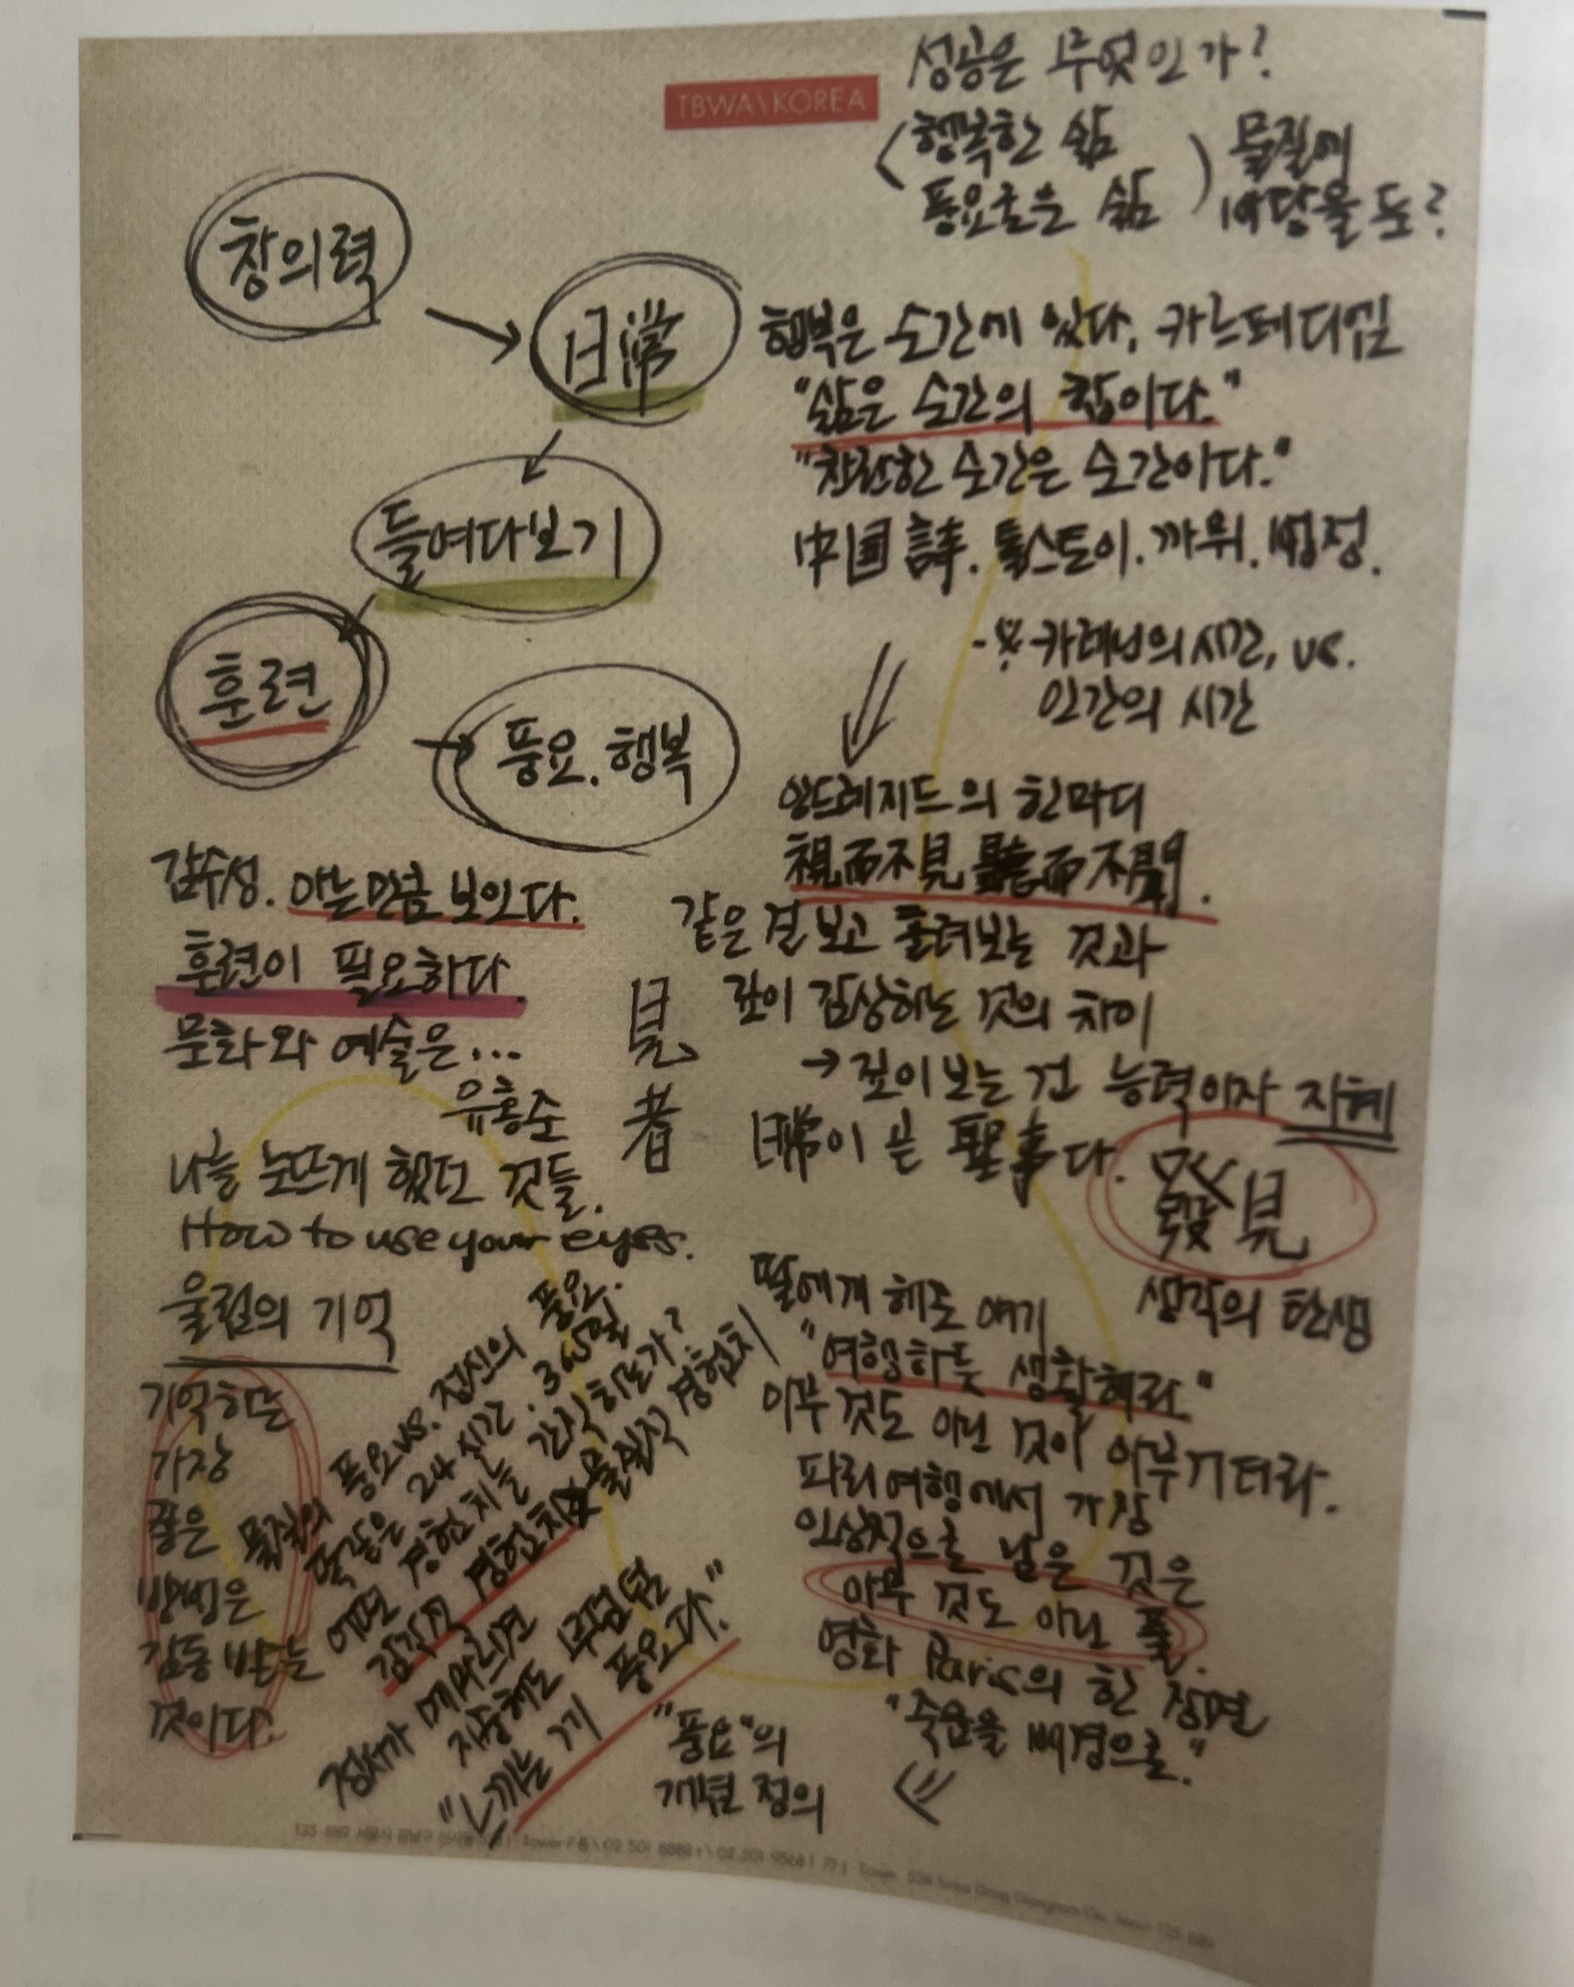 TBWA\KOREA
성공은 무엇인가?
행복한 삶
풍요로운 삶
물질에
바탕을 둔?
창의력
日常
들여다보기
훈련
풍요. 행복
행복은 순간에 있다. 카르페디엠
"삶은 순간의 합이다."
"찬란한 순간은 순간이다."
中国 詩. 톨스토이. 까뮈. 법정.
인간의 시간
앙드레지드의 한마디
視而不見 聽而不聞.
같은 걸 보고 흘려보는 것과
깊이 감상하는 것의 차이
→ 깊이 보는 건 능력이자 지혜
日常이 곧 聖事다.
發見
생각의 탄생
감수성. 아는만큼 보인다.
훈련이 필요하다.
문화와 예술은...
유홍준
見
者
나를 눈뜨게 했던 것들.
How to use your eyes.
울림의 기억
기억하는
가장
좋은
방법은
감동 받는
것이다.
물질의 풍요 vs. 정신의 풍요.
똑같은 24시간. 365일
어떤 경험치를 간직하는가?
감각적 경험치 물질적 경험치
정서가 메마르면
지중해도 무덤덤
"느끼는 게 풍요다."
"풍요"의
개념 정의
딸에게 해준 얘기
"여행하듯 생활해라"
아무 것도 아닌 것이 아무거더라.
파리여행에서 가장
인상적으로 남은 것은
아무 것도 아닌 풀.
영화 Paris의 한 장면
"죽음을 배경으로."